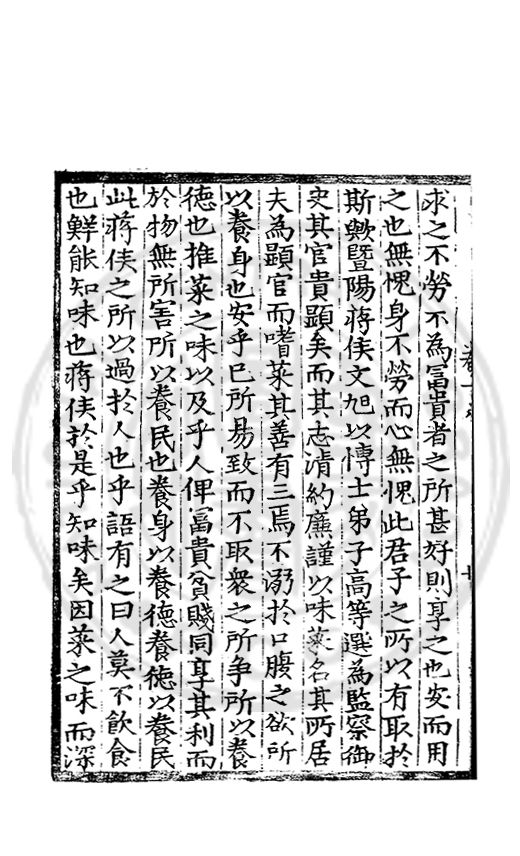 求之不勞不為冨貴者之所甚好則享之也安而用
之也無愧身不勞而心無愧此君子之所以有取扵
斯歟暨陽蔣侯文旭以博士弟子高等選為監察御
史其官貴顯矣而其志清約廉謹以味菜名其所居
夫為顯官而嗜菜其善有三焉不溺扵口腹之欲所
以養身也安乎已所易致而不取衆之所争所以養
德也推菜之味以及乎人俾冨貴貧賤同享其利而
於物無所害所以養民也養身以養德養徳以養民
此蔣侯之所以過扵人也乎語有之曰人莫不飲食
也鮮能知味也蔣侯扵是乎知味矣因菜之味而深